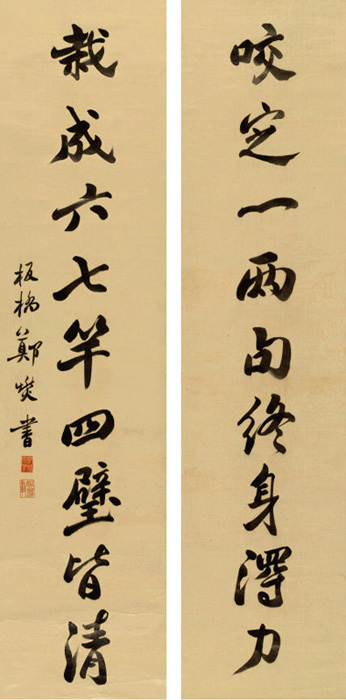 咬定一两句终身得力
栽成六七竿四壁皆清
板桥郑燮书